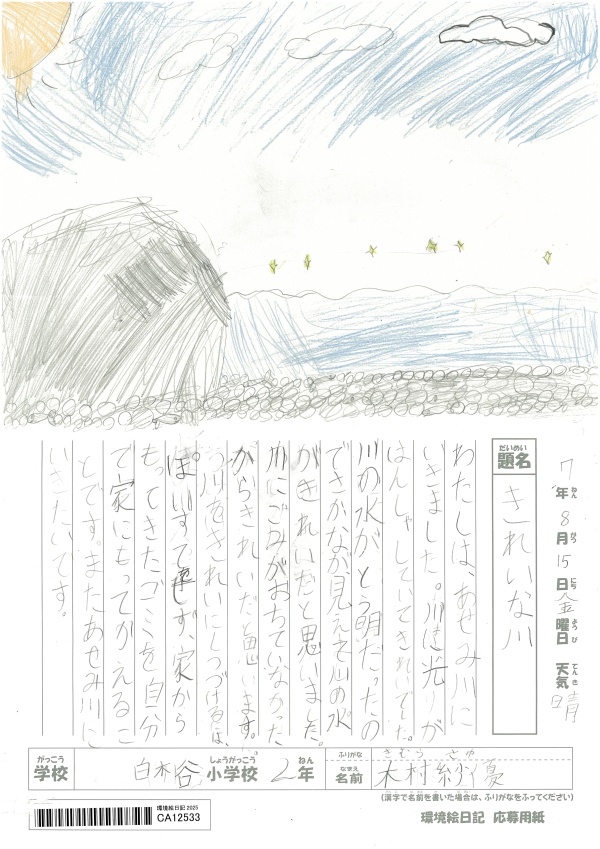 7年 8月 15日 金曜日 天気 晴
ねん がつ にち ようび てんき
だいめい
題名
きれいな川
わたしは、あせみ川に
いきました。川は光りが
はんしゃしていてきれいでした。
川の水がとう明だったの
でさかなが見えて川の水
がきれいだと思いました。
川にごみがおちていなかった
からきれいだと思います。
川をきれいにしつづけるには、
ぽいすてせず、家から
もってきたゴミを自分
で家にもってかえるこ
とです。またあせみ川に
いきたいです。
がっこう しょうがっこう ねん
学校 白木谷 小学校 2年
ふりがな きむら さゆ
なまえ
名前 木村 紗優
(漢字で名前を書いた場合は、ふりがなをふってください)
環境絵日記 2025
CA12533
環境絵日記 応募用紙